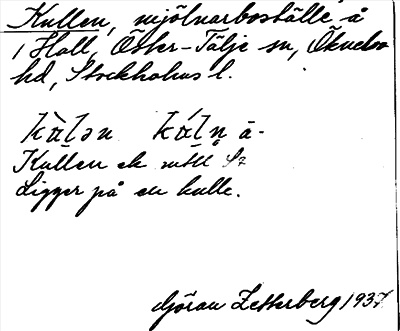 Kullen, mjölnarboställe å
1 Hall, Öster-Tälje sn, Öknebo
hd, Stockholms l.
kàlən kálņ ä-
Kullen ek
Ligger på en kulle.
Göran Zetterberg 1937